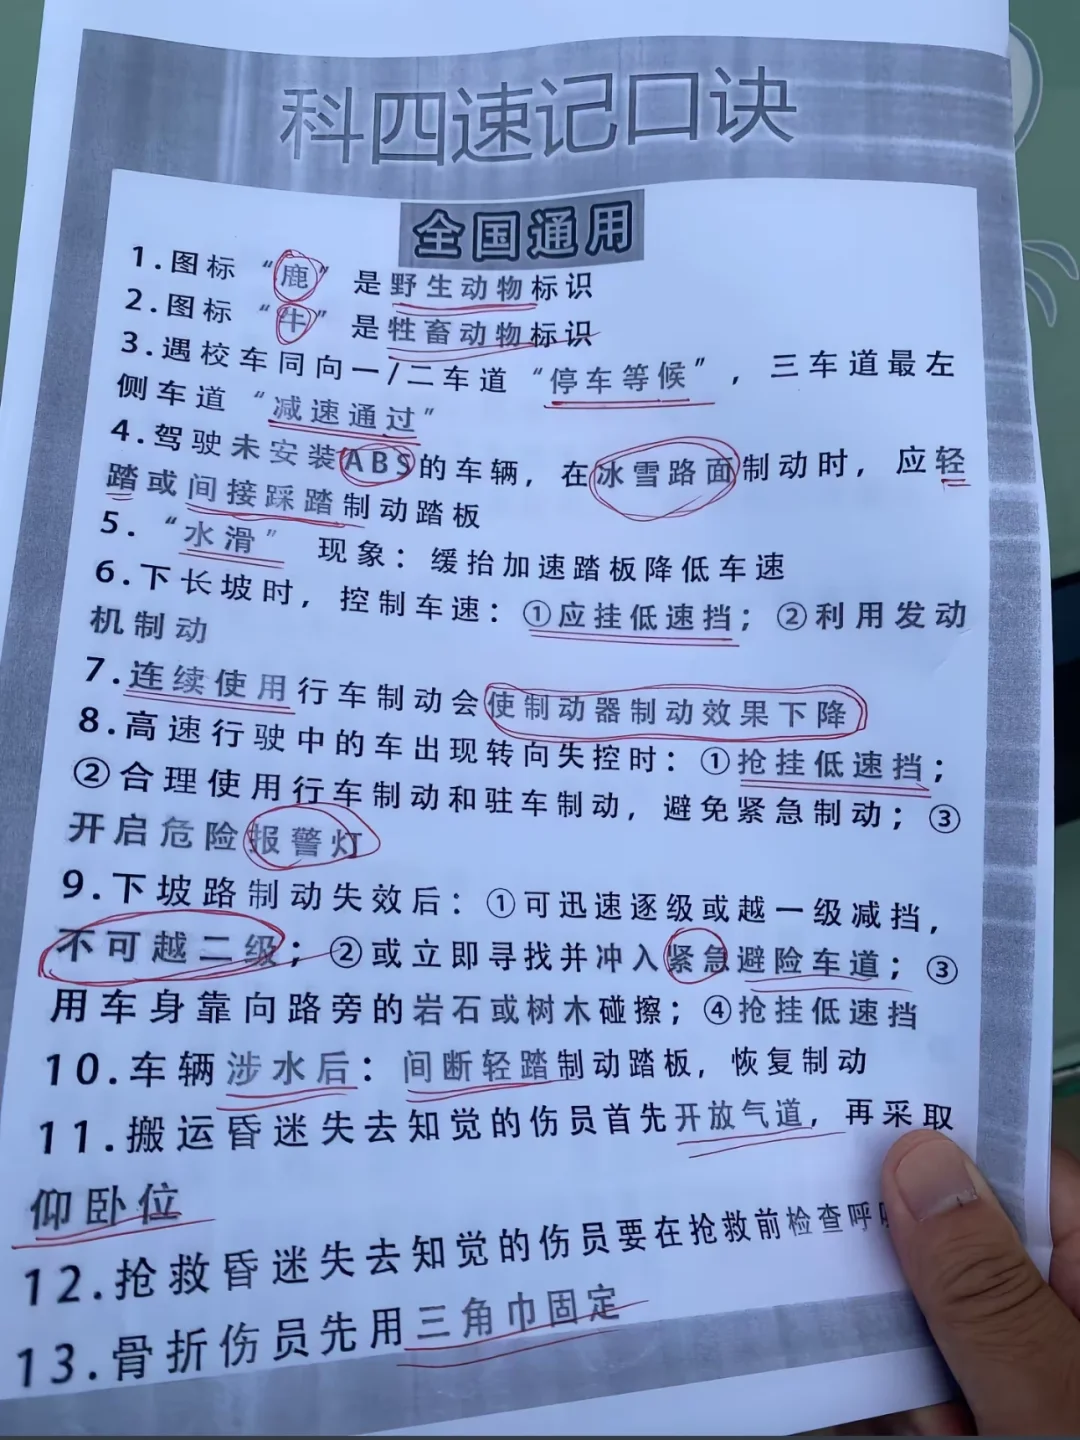 科四速记口诀
全国通用
1.图标“鹿”是野生动物标识
2.图标“牛”是牲畜动物标识
3.遇校车同向一/二车道“停车等候”，三车道最左
侧车道“减速通过”
4.驾驶未安装ABS的车辆，在冰雪路面制动时，应轻
踏或间接踩踏制动踏板
5.“水滑”现象：缓抬加速踏板降低车速
6.下长坡时，控制车速：①应挂低速挡；②利用发动
机制动
7.连续使用行车制动会使制动器制动效果下降
8.高速行驶中的车出现转向失控时：①抢挂低速挡；
②合理使用行车制动和驻车制动，避免紧急制动；③
开启危险报警灯
9.下坡路制动失效后：①可迅速逐级或越一级减挡，
不可越二级；②或立即寻找并冲入紧急避险车道；③
用车身靠向路旁的岩石或树木碰擦；④抢挂低速挡
10.车辆涉水后：间断轻踏制动踏板，恢复制动
11.搬运昏迷失去知觉的伤员首先开放气道，再采取
仰卧位
12.抢救昏迷失去知觉的伤员要在抢救前检查呼
13.骨折伤员先用三角巾固定